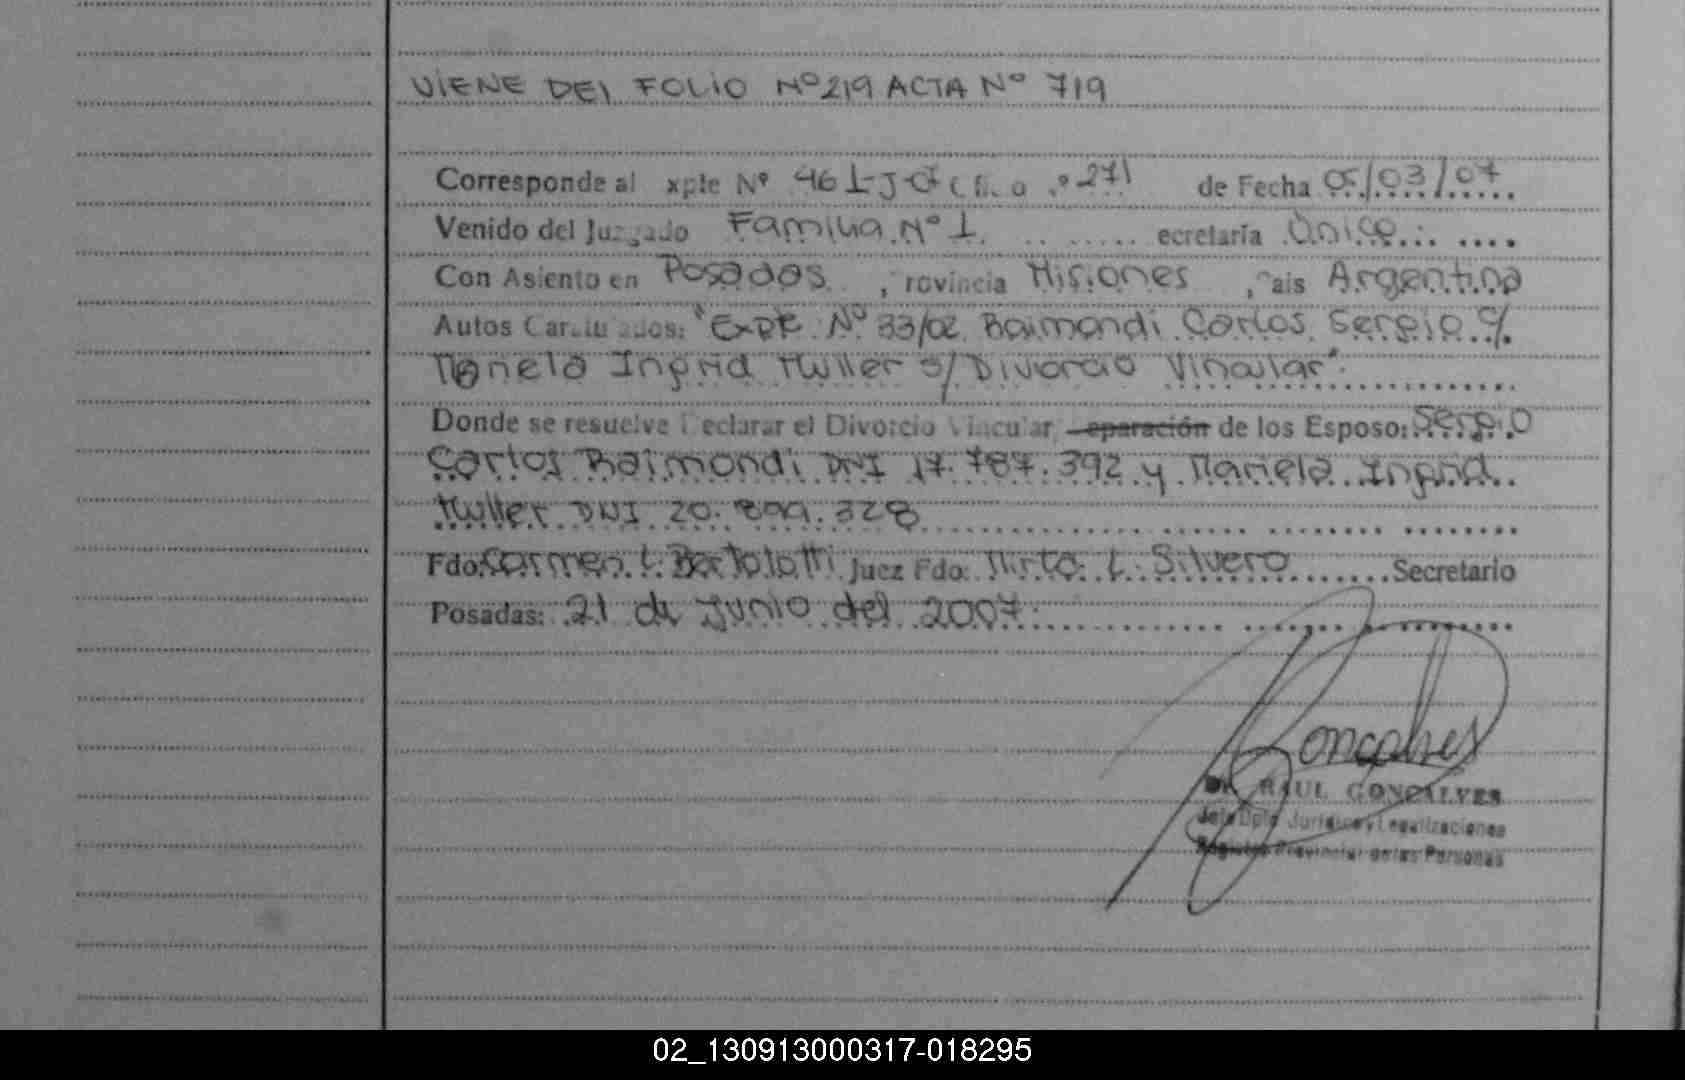 VIENE DEL FOLIO Nº 219 ACTA Nº 719
Corresponde al xpte Nº 461-J-07 Ofi. o º 271 de Fecha 05/03/07
Venido del Juzgado Familia Nº 1 ecretaría Única
Con Asiento en Posadas, rovincia Misiones, ais Argentina
Autos Caratulados: "Expte Nº 33/02 Raimondi Carlos Sergio c/
Mariela Ingrid Muller s/ Divorcio Vincular".
Donde se resuelve Declarar el Divorcio Vincular, eparación de los Esposo: Sergio
Carlos Raimondi DNI 17.787.392 y Mariela Ingrid
Muller DNI 20.899.328
Fdo: Carmen L. Bortolotti Juez Fdo: Mirta L. Silvero Secretario
Posadas: 21 de Junio del 2007.
Goncalves
Dr. RAUL GONCALVES
Jefe Dpto Juridico y Legalizaciones
Registro Provincial de las Personas
02_130913000317-018295